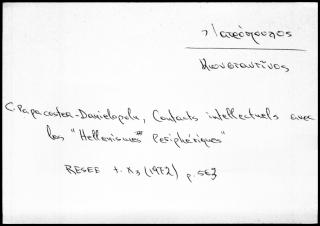 Κωνσταντῖνος
C. Papacostea-Danielopolu, Contacts intellectuels avec
les "Hellenismes Periphériques"
RESEE t. X3 (1972) p. 563